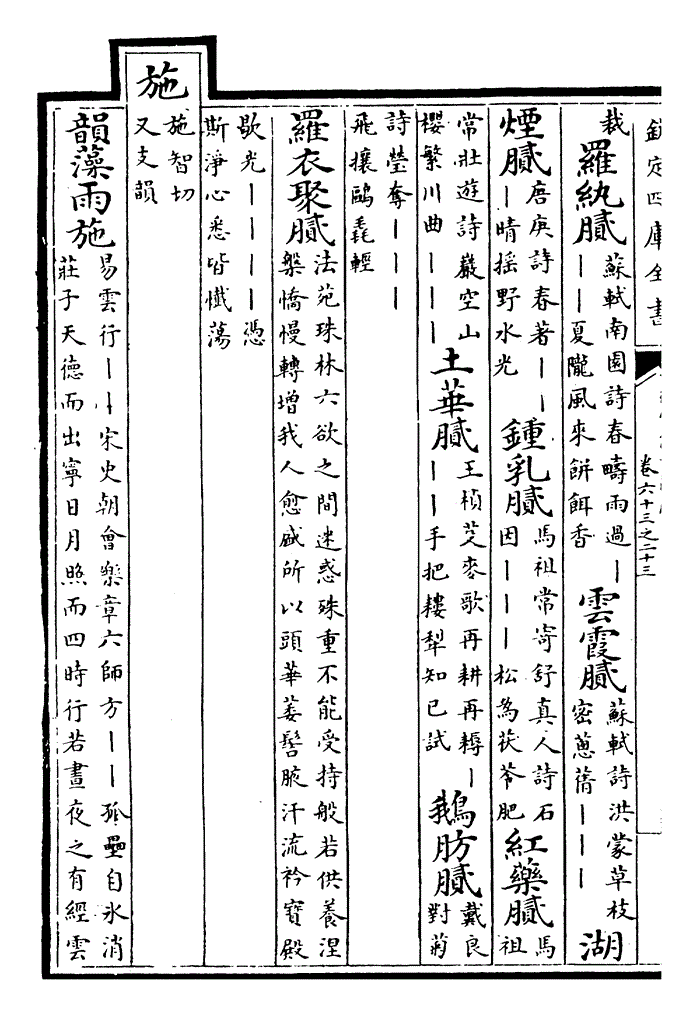 欽定四庫全書
卷六十三之二十三
裁
羅紈膩
蘇軾南園詩春疇雨過｜
｜｜夏隴風來餅餌香
雲霞膩
蘇軾詩洪蒙草枝
密蔥蒨｜｜｜
湖
煙膩
唐庚詩春著｜｜
｜晴搖野水光
鍾乳膩
馬祖常寄舒真人詩石
因｜｜｜松為茯苓肥
紅藥膩
馬
祖
常壯遊詩巖空山
櫻繁川曲｜｜｜
土華膩
王楨芟麥歌再耕再耨｜
｜｜手把耬犁知已試
鵝肪膩
戴良
對菊
詩瑩奪｜｜｜
飛攘鷗毳輕
羅衣聚膩
法苑珠林六欲之間迷惑殊重不能受持般若供養涅
槃憍慢轉增我人愈盛所以頭華萎髻腋汗流衿寶殿
歇光｜｜｜｜憑
斯淨心悉皆懺蕩
施
施智切
又支韻
韻藻雨施
易雲行｜｜宋史朝會樂章六師方｜｜孤壘自氷消
莊子天德而出寧日月照而四時行若晝夜之有經雲